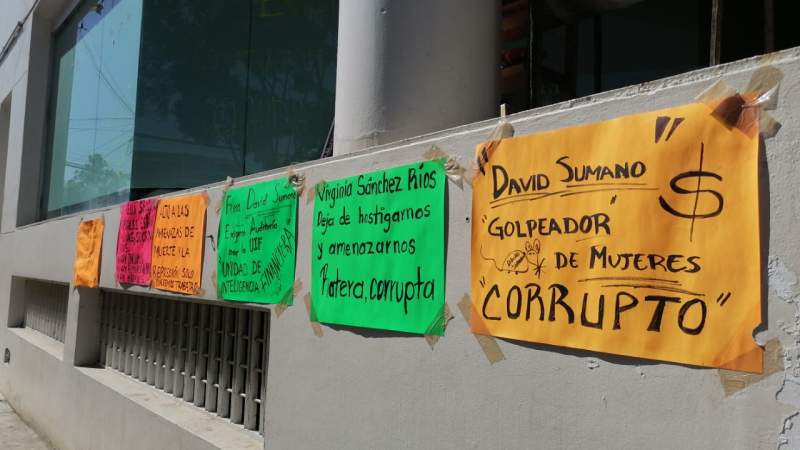 ALTO A LAS
AMENAZAS DE
MUERTE Y LA
REPRESIÓN SOLO
QUEREMOS TRABAJO
Fuera David Sumano
Exigimos Auditoria
por la UIF
UNIDAD DE
INTELIGENCIA
FINANCIERA
Virginia Sánchez Ríos
Deja de hostigarnos
y amenazarnos
Ratera, corrupta
"DAVID SUMANO" $
"GOLPEADOR"
DE MUJERES
"CORRUPTO"